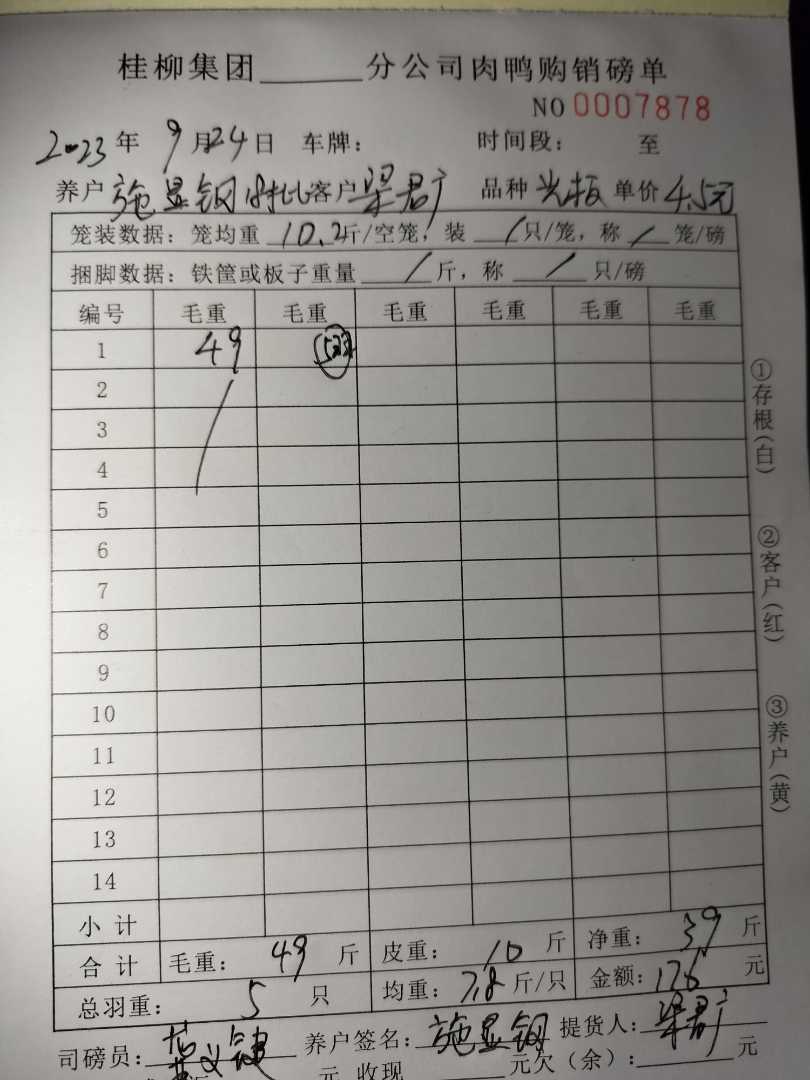 桂柳集团______分公司肉鸭购销磅单
NO 0007878
2023年 9月24日 车牌： 时间段： 至
养户 施显钢 8批 客户 梁君广 品种 光板 单价 4.5元
笼装数据：笼均重 10.2 斤/空笼，装 / 只/笼，称 / 笼/磅
捆脚数据：铁筐或板子重量 / 斤，称 / 只/磅
编号 毛重 毛重 毛重 毛重 毛重 毛重
1 49
2
3
4
5
6
7
8
9
10
11
12
13
14
小计
合计 毛重： 49 斤 皮重： 10 斤 净重： 39 斤
总羽重： 5 只 均重：7.8 斤/只 金额：176 元
司磅员： 养户签名：施显钢 提货人：梁君广
元 收现______元欠（余）：______元
①存根（白）
②客户（红）
③养户（黄）